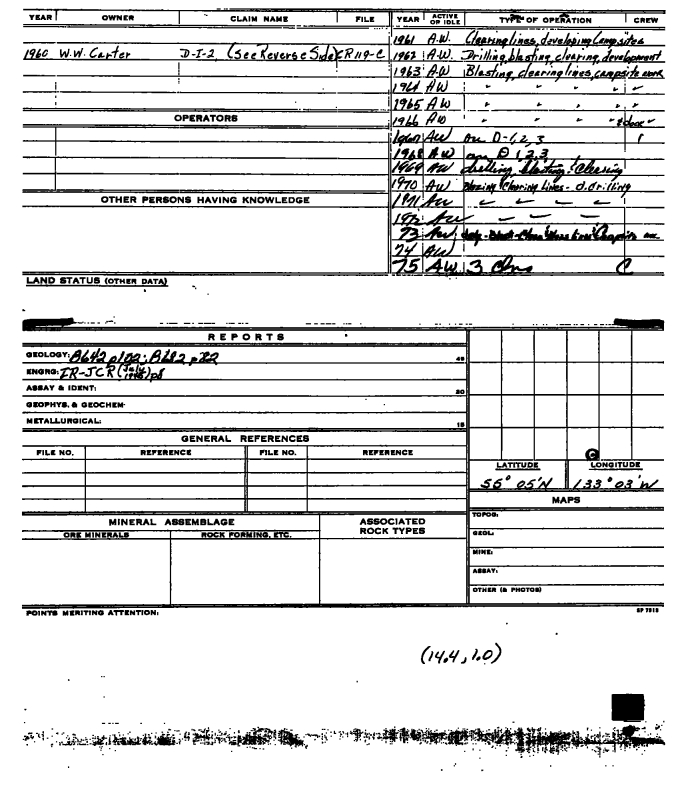 YEAR OWNER CLAIM NAME FILE YEAR ACTIVE OR IDLE TYPE OF OPERATION CREW
1961 A.W. Clearing lines, developing Campsites
1960 W.W. Carter D-I-2 (See Reverse Side) CR 119-C 1962 A.W. Drilling, blasting, clearing, development
1963 A.W. Blasting, clearing lines, campsite work
1964 AW " " " " "
1965 AW " " " " "
OPERATORS 1966 AW " " " "
AW on D-1,2,3
1968 AW on D 1,2,3
1969 AW drilling, blasting, clearing
1970 AW Clearing Lines - d.drilling
OTHER PERSONS HAVING KNOWLEDGE 1971 AW " " " "
1972 AW — — —
73 AW
74 AW
75 AW 3 Clms C
LAND STATUS (OTHER DATA)
REPORTS
GEOLOGY: B642 p102; B682 p22 45
ENGRG: IR-JCR (July 1948) p8
ASSAY & IDENT: 30
GEOPHYS. & GEOCHEM-
METALLURGICAL: 15
GENERAL REFERENCES
FILE NO. REFERENCE FILE NO. REFERENCE
C
LATITUDE LONGITUDE
55° 05'N 133° 03'W
MAPS
TOPOG:
GEOL:
MINE:
ASSAY:
OTHER (& PHOTOS)
MINERAL ASSEMBLAGE ASSOCIATED ROCK TYPES
ORE MINERALS ROCK FORMING, ETC.
POINTS MERITING ATTENTION:
(14.4, 1.0)